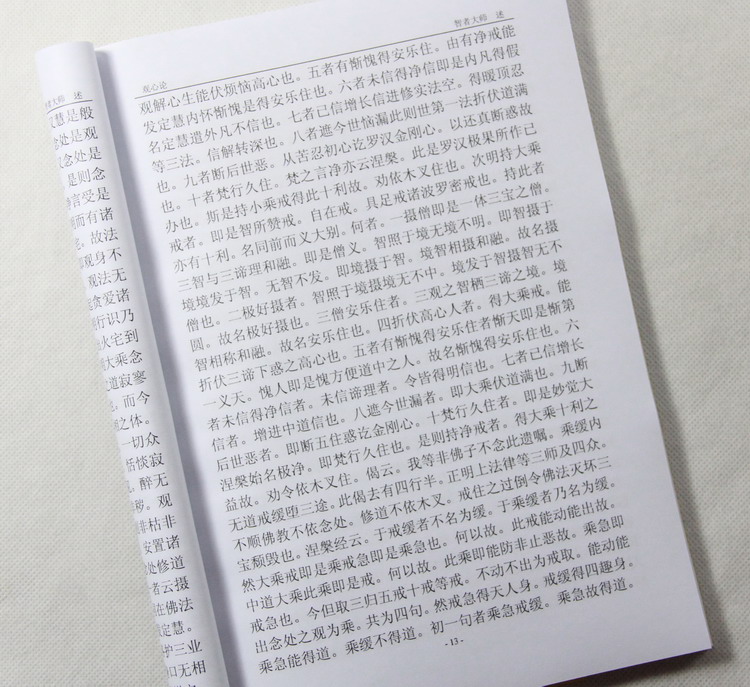 智者大师 述
观心论
观解心生能伏烦恼高心也。五者有惭愧得安乐住。由有净戒能
发定慧内怀惭愧是得安乐也。六者未信得净信即是内凡得假
名定慧遣外凡不信也。七者已信增长信进修实法空。得暖顶忍
等三法。信解转深也。八者遮今世恼漏此则世第一法折伏道满
也。九者断后世恶。从苦忍初心讫罗汉金刚心。以还真断惑故
也。十者梵行久住。梵之言净亦云涅槃。此是罗汉极果所作已
办也。斯是持小乘戒得此十利故。劝依木叉住也。次明持大乘
戒者。即是智所赞戒。自在戒。具足戒诸波罗密戒也。持此者
亦有十利。名同前而义大别。何者。一摄僧即是一体三宝之僧。
三智与三谛理和融。即是僧义。智照于境无境不明。即智摄于
境境发于智。无智不发。即境摄于智。境智相摄和融。故名摄
僧也。二极好摄者。智照于境摄境无不中。境发于智摄智无不
圆。故名极好摄也。三僧安乐住者。三观之智栖三谛之境。境
智相称和融。故名安乐住也。四折伏高心人者。得大乘戒。能
折伏三谛下惑之高心也。五者有惭愧得安乐住者惭天即是惭第
一义天。愧人即是愧方便道中之人。故名惭愧得安乐住也。六
者未信得净信者。未信谛理者。令皆得明信也。七者已信增长
信者。增进中道信也。八遮今世漏者。即大乘伏道满也。九断
后世恶者。即断五住惑讫金刚心。十梵行久住者。即是妙觉大
涅槃始名极净。即梵行久住也。是则持净戒者。得大乘十利之
益故。劝令依木叉住。偈云。我等非佛子不念此遗嘱。乘缓内
无道戒缓堕三途。此偈去有四行半。正明上法律等三师及四众。
不顺佛教不依念处。修道不依木叉。戒住之过倒令佛法灭坏三
宝颓毁也。涅槃经云。于戒缓者不名为缓。于乘缓者乃名为缓。
然大乘戒即是乘戒急即是乘急也。何以故。此戒能动能出故。
中道大乘此乘即是戒。何以故。此乘即能防非止恶故。乘急即
戒急也。今但取三归五戒十戒等戒。不动不出为戒取。能动能
出念处之观为乘。共为四句。然戒急得天人身。戒缓得四趣身。
乘急能得道。乘缓不得道。初一句者乘急戒缓。乘急故得道。
- 13 -
大师 述
慧是般
念处是观
念处是
是则念
言受是
而有诸
故法
观身不
观法无
贪爱诸
行识乃
火宅到
大乘念
道寂寥
而今
之体。
一切众
恬惔寂
醉无
秽。观
非枯非
安置诸
处修道
者云摄
在佛法
定慧。
护三业
口无相